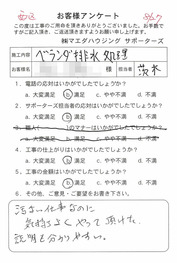 お客様アンケート
この度は工事のご用命を頂きありがとうございました。お手数で
すがご記入頂き、ご返送頂きますようお願い申し上げます。
㈱マエダハウジング サポーターズ
施工内容 ベランダ排水処理
お客様名 様 担当者 茨木
1. 電話の応対はいかがでしたでしょうか？
a. 大変満足 b. 満足 c. やや不満 d. 不満
2. サポーターズ担当者の応対はいかがでしたでしょうか？
a. 大変満足 b. 満足 c. やや不満 d. 不満
a. 大変満足 b. 満足 c. やや不満 d. 不満
4. 工事の仕上りはいかがでしたでしょうか？
a. 大変満足 b. 満足 c. やや不満 d. 不満
5. 工事の金額はいかがでしたでしょうか？
a. 大変満足 b. 満足 c. やや不満 d. 不満
6. その他、ご意見・ご要望などお書き下さい。
仕事なのに
気持よくやって頂けた。
説明も分かりやすい。